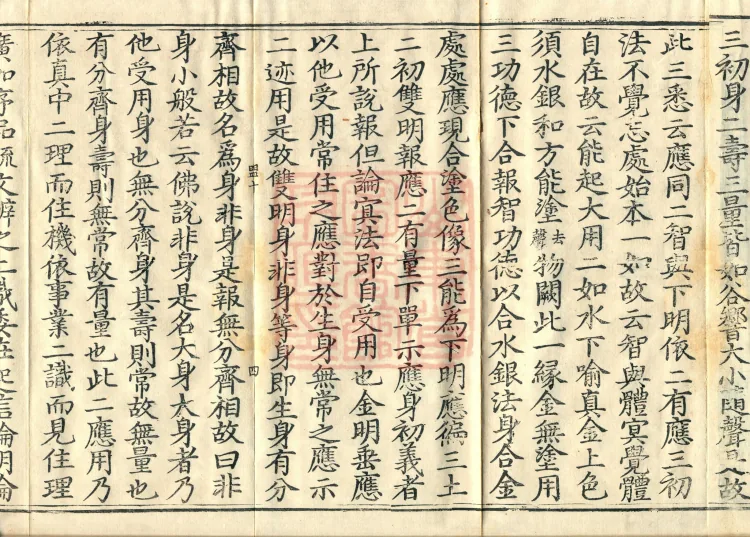 三初身二壽三量皆如谷響大小隨聲是故
此三悉云應同二智與下明依二有應三初
法不覺忘處始本一如故云智與體冥覺體
自在故云能起大用二如水下喻真金上色
須水銀和方能塗去聲物闕此一緣金無塗用
三功德下合報智功德以合水銀法身合金
處處應現合塗色像三能為下明應徧三土
二初雙明報應二有量下單示應身初義者
上所說報但論冥法即自受用也金明垂應
以他受用常住之應對於生身無常之應示
二迹用是故雙明身非身等身即生身有分
四十 四
齊相故名為身非身是報無分齊相故曰非
身小般若云佛說非身是名大身大身者乃
他受用身也無分齊身其壽則常故無量也
有分齊身壽則無常故有量也此二應用乃
依真中二理而住機依事業二識而見住理
廣如序品疏文辨之二識委在起信論明論